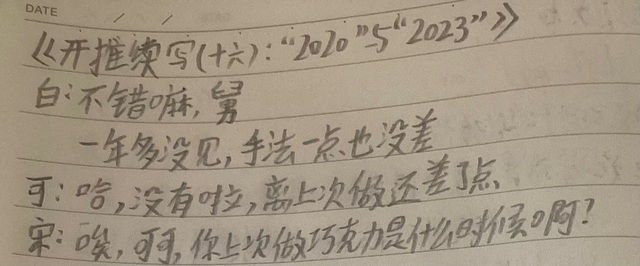 DATE
《开推续写(十六):“2020”与“2023”》
白:不错嘛,舅
一年多没见,手法一点也没差
可:哈,没有啦,离上次做还差了点
宋:唉,可可,你上次做巧克力是什么时候啊?